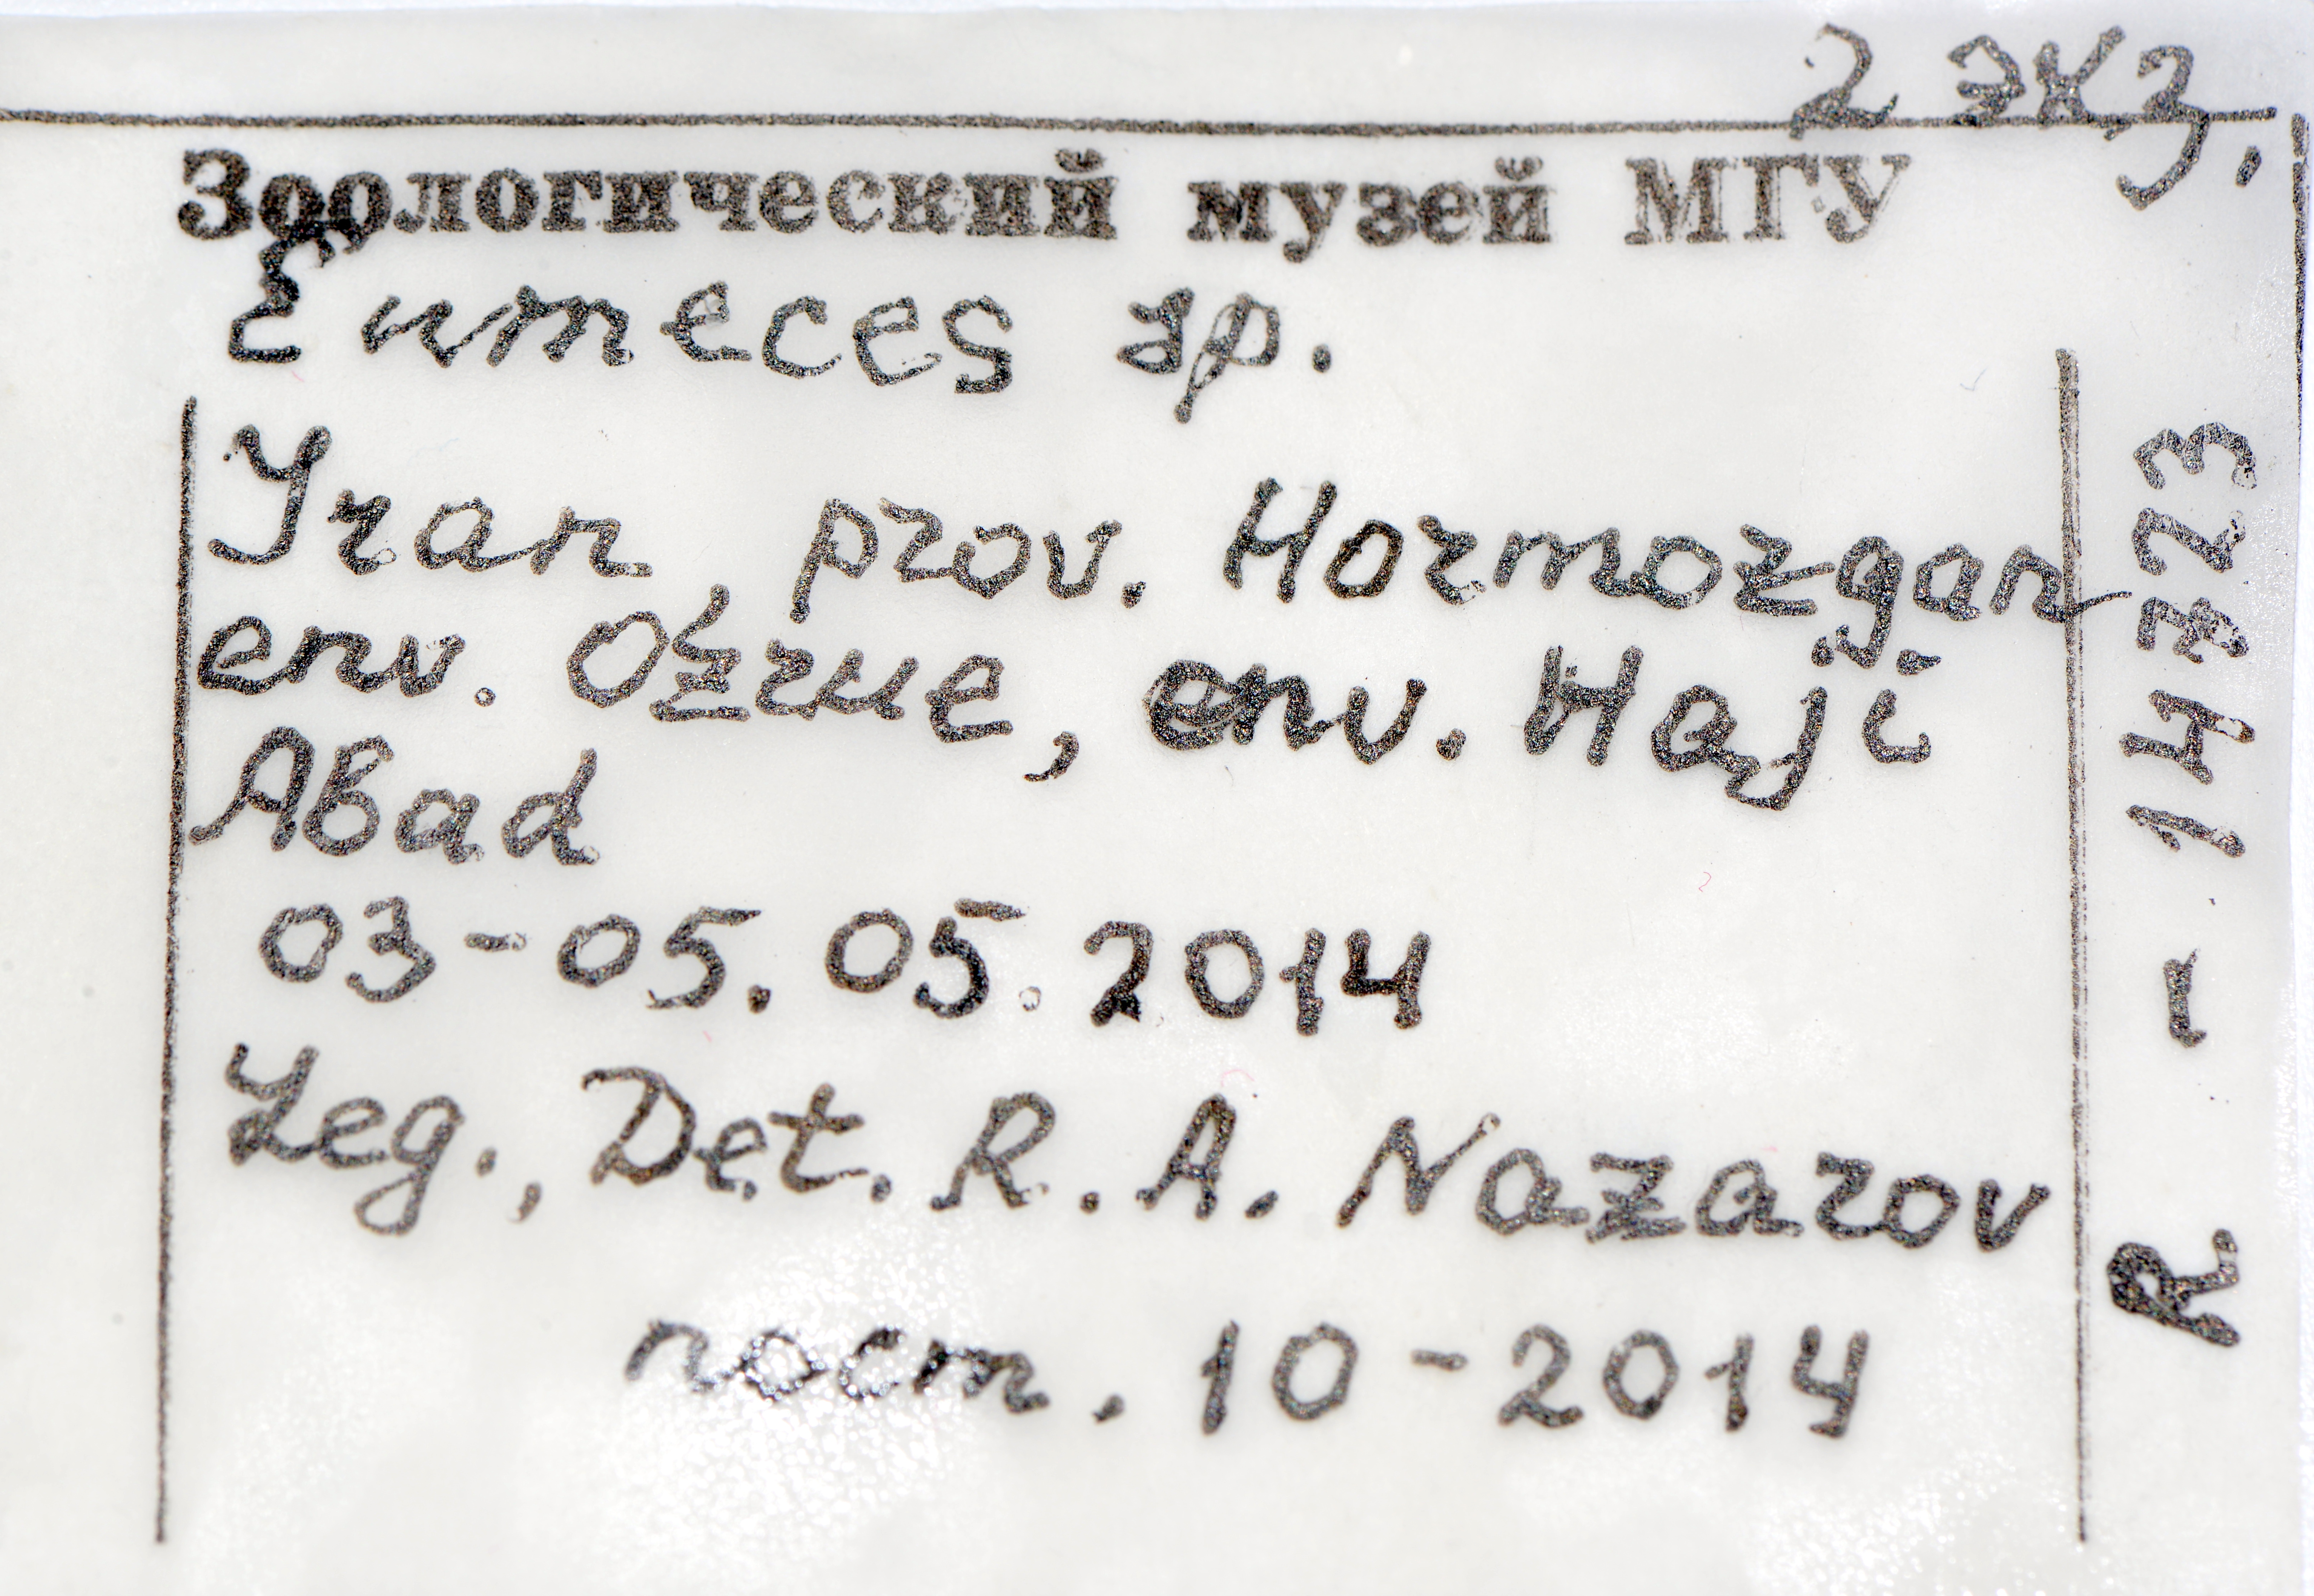 2 экз.
Зоологический музей МГУ
Eumeces sp.
Iran, prov. Hormozgan
env. Ozrue, env. Haji
Abad
03-05.05.2014
Leg., Det. R.A. Nazarov
пост. 10-2014
R - 14323